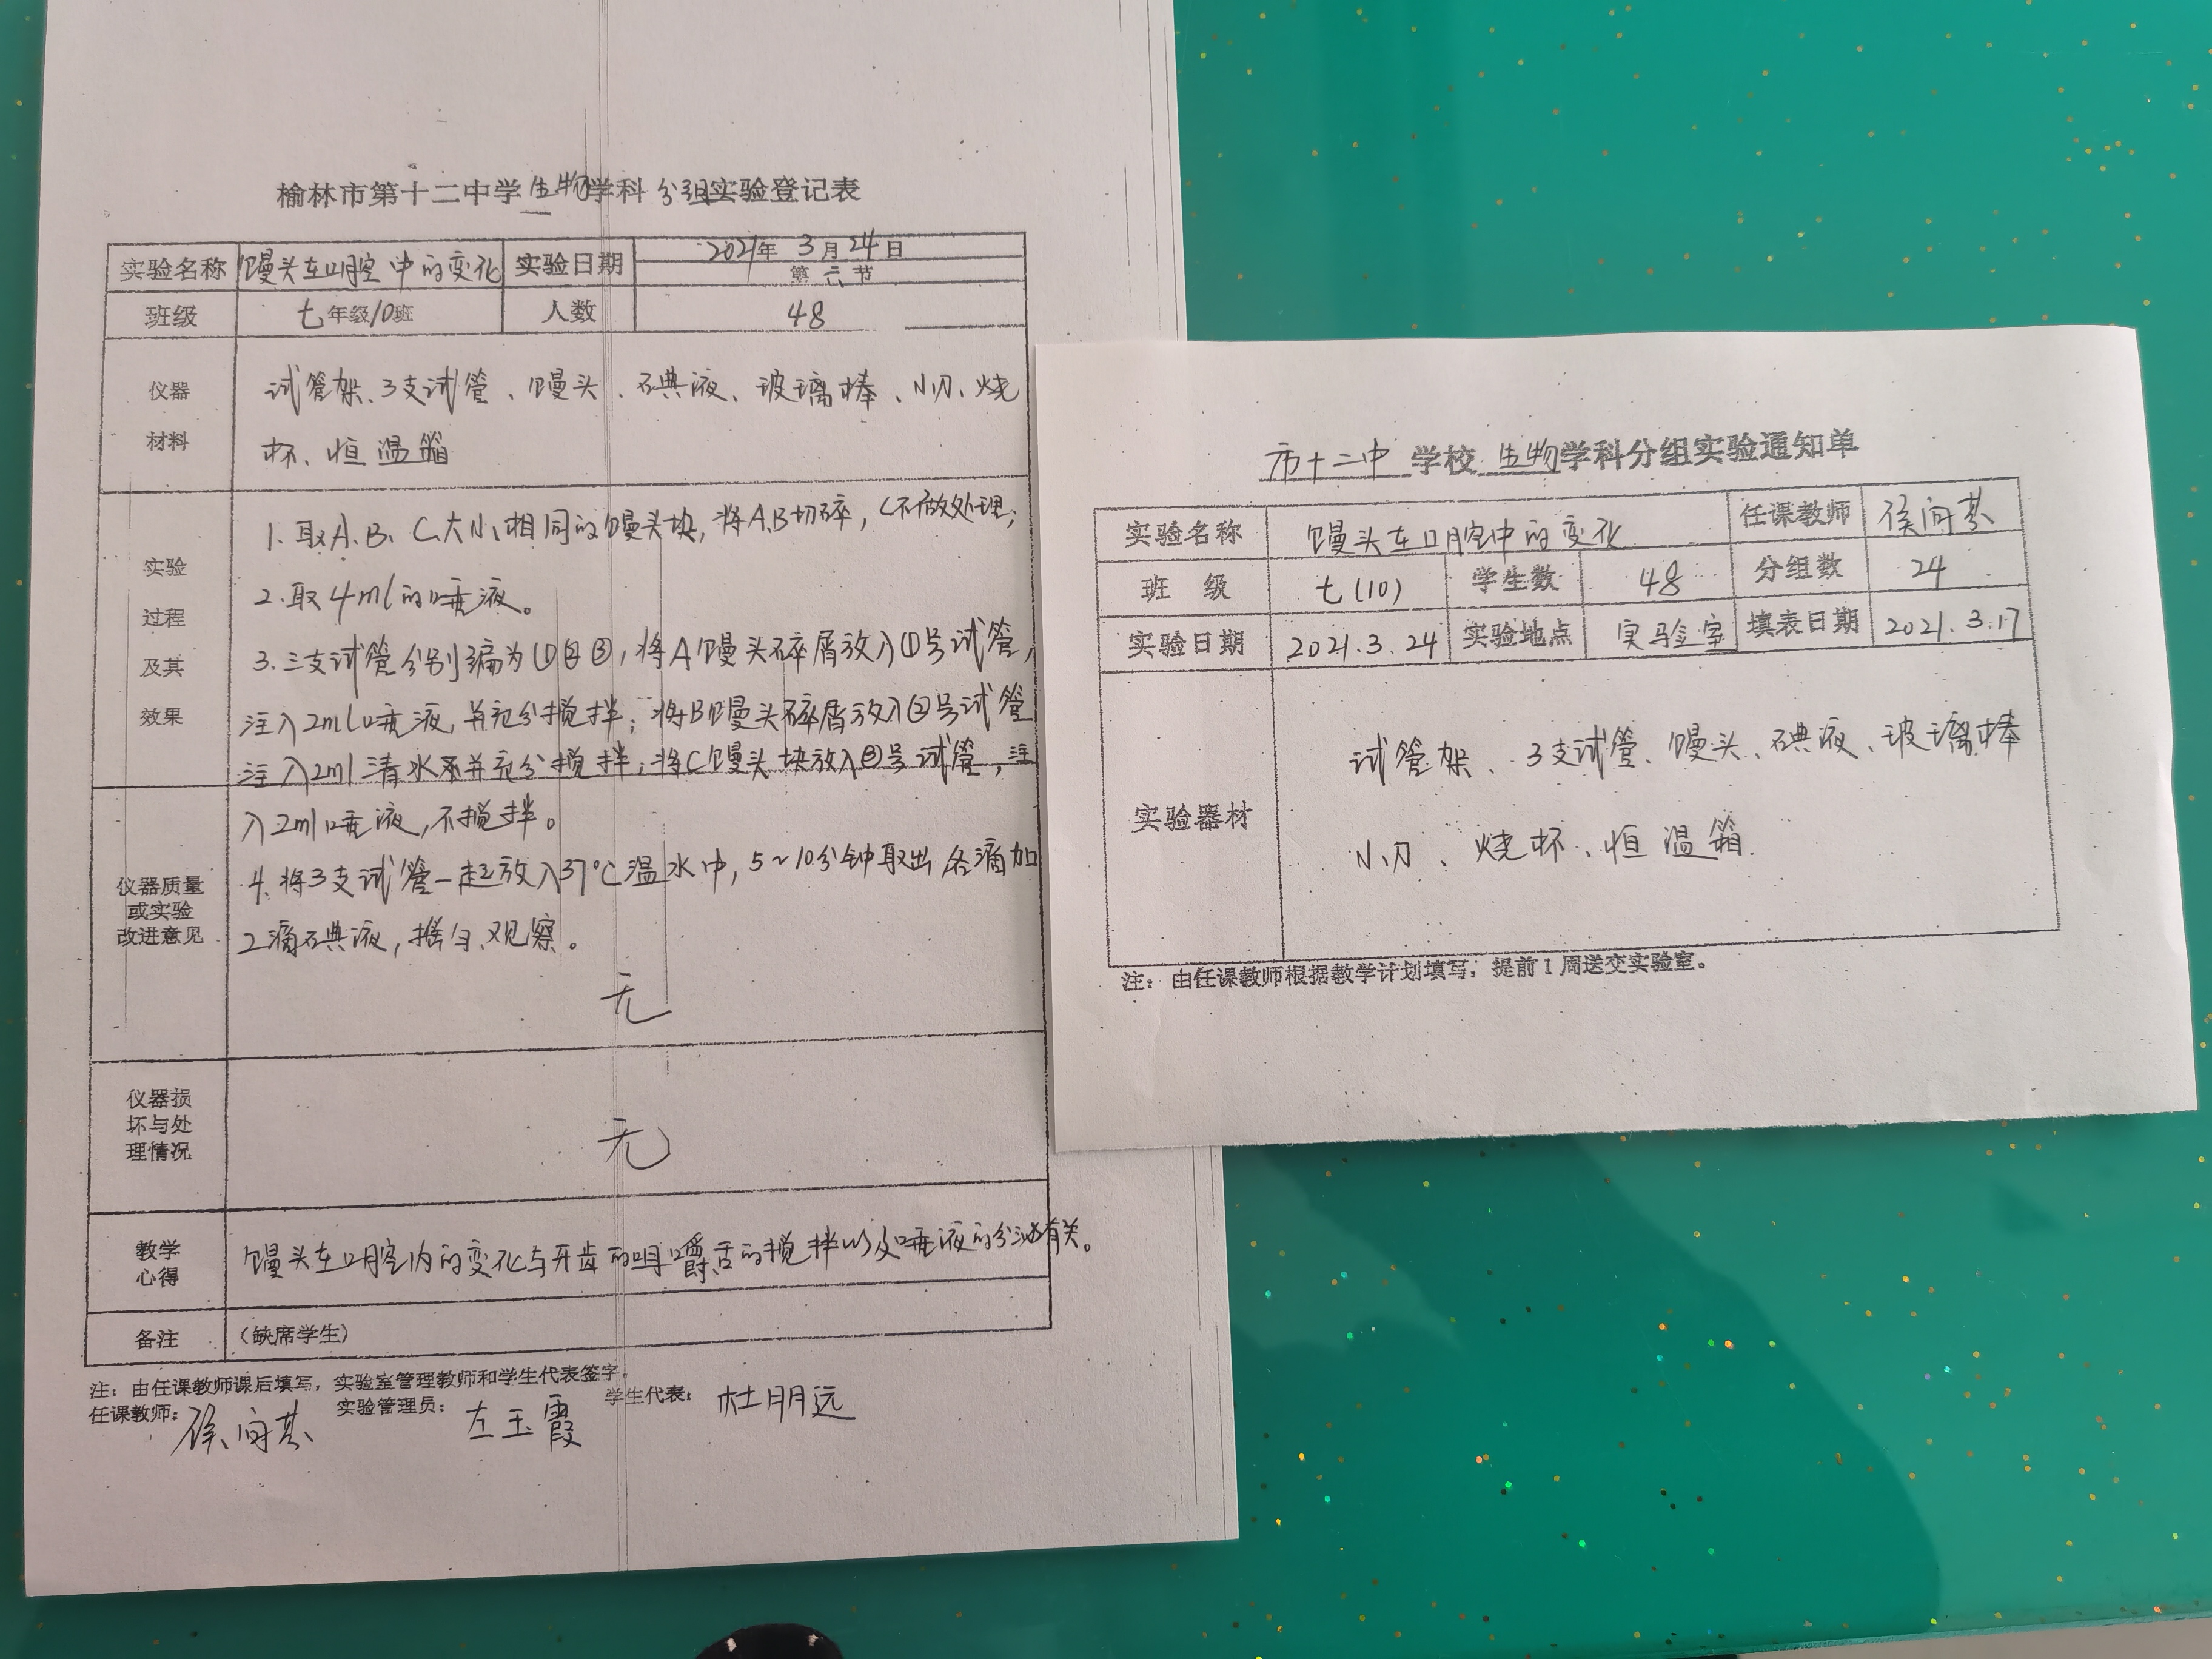 榆林市第十二中学生物学科分组实验登记表
实验名称 馒头在口腔中的变化 实验日期 2021年3月24日
第六节
班级 七年级10班 人数 48
仪器
材料
试管架、3支试管、馒头、碘液、玻璃棒、小刀、烧
杯、恒温箱
实验
过程
及其
效果
1.取A、B、C大小相同的馒头块,将A、B切碎,C不做处理;
2.取4ml的唾液。
3.三支试管分别编为①②③,将A馒头碎屑放入①号试管,
注入2ml唾液,并充分搅拌;将B馒头碎屑放入②号试管
注入2ml清水并充分搅拌;将C馒头块放入③号试管,注
入2ml唾液,不搅拌。
4.将3支试管一起放入37℃温水中,5~10分钟取出,各滴加
2滴碘液,摇匀、观察。
仪器质量
或实验
改进意见
无
仪器损
坏与处
理情况
无
教学
心得
馒头在口腔内的变化与牙齿的咀嚼、舌的搅拌以及唾液的分泌有关。
备注 (缺席学生)
注:由任课教师课后填写,实验室管理教师和学生代表签字。
任课教师: 实验管理员:左玉霞 学生代表:杜朋远
市十二中学校生物学科分组实验通知单
实验名称 馒头在口腔中的变化 任课教师
班级 七(10) 学生数 48 分组数 24
实验日期 2021.3.24 实验地点 实验室 填表日期 2021.3.17
实验器材
试管架、3支试管、馒头、碘液、玻璃棒
小刀、烧杯、恒温箱.
注:由任课教师根据教学计划填写,提前1周送交实验室。